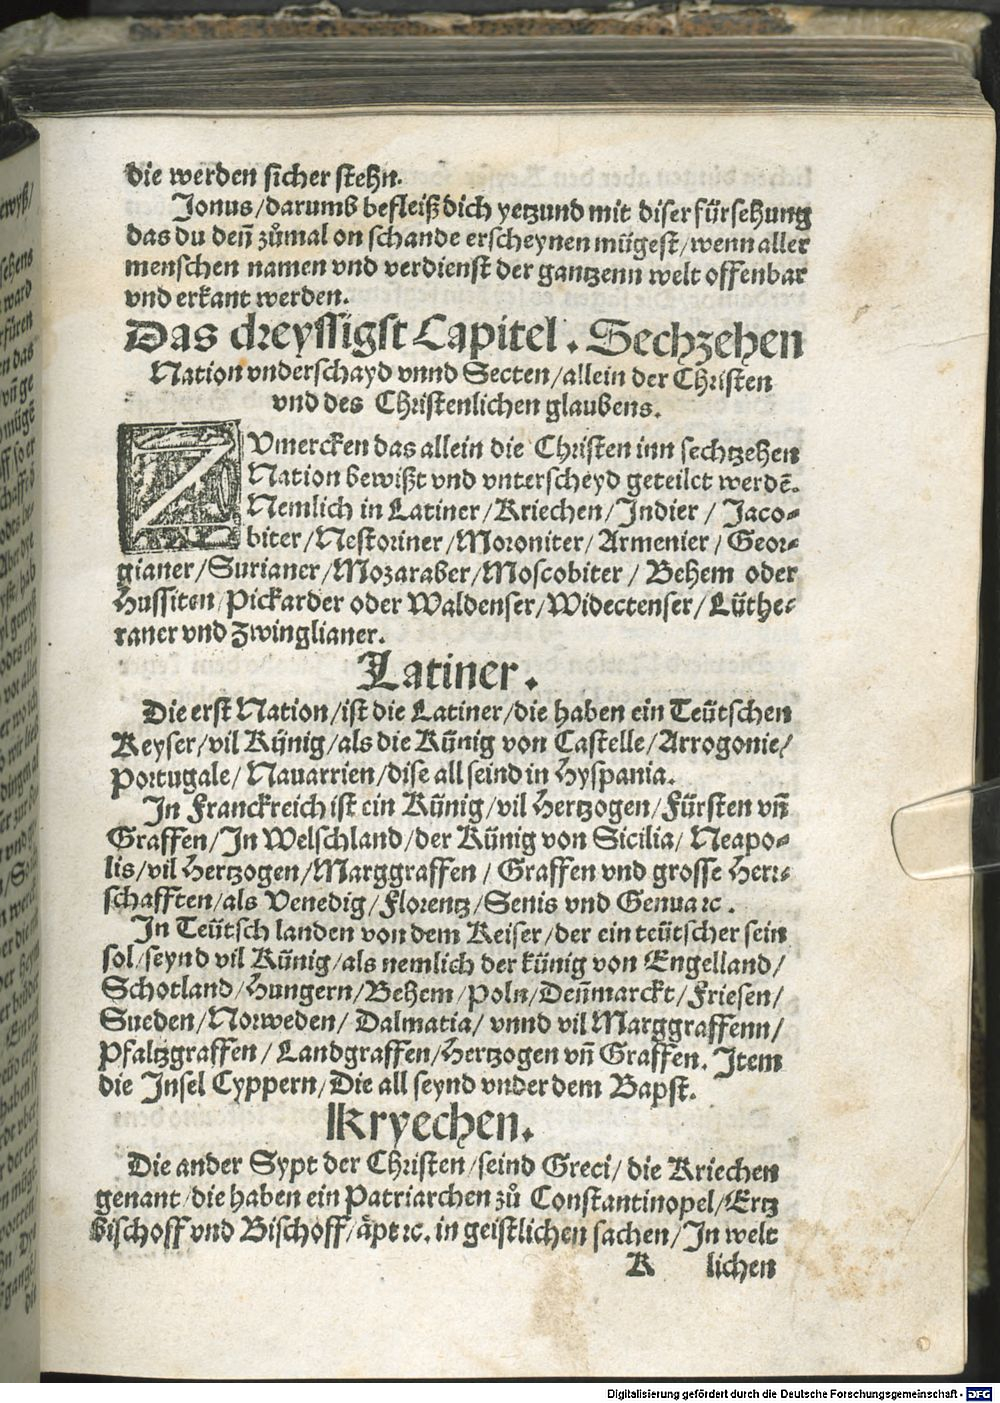 die werden sicher stehn.
Jonus/darumb befleiß dich yetzund mit diser fürsehung
das du deñ zůmal on schande erscheynen mügest/wenn aller
menschen namen vnd verdienst der gantzenn welt offenbar
vnd erkant werden.
Das dreyssigst Capitel. Sechzehen
Nation vnderschayd vnnd Secten/allein der Christen
vnd des Christenlichen glaubens.
ZVmercken das allein die Christen inn sechtzehen
Nation bewißt vnd vnterscheyd geteilet werdē.
Nemlich in Latiner/Kriechen/Indier/Jaco-
biter/Nestoriner/Moroniter/Armenier/Geor-
gianer/Surianer/Mozaraber/Moscobiter/Behem oder
Hussiten/Pickarder oder Waldenser/Widectenser/Lüthe-
raner vnd Zwinglianer.
Latiner.
Die erst Nation/ist die Latiner/die haben ein Teütschen
Keyser/vil Künig/als die Künig von Castelle/Arrogonie/
Portugale/Nauarrien/dise all seind in Hyspania.
In Franckreich ist ein Künig/vil Hertzogen/Fürsten vñ
Graffen/In Welschland/der Künig von Sicilia/Neapo-
lis/vil Hertzogen/Marggraffen/Graffen vnd grosse Herr-
schafften/als Venedig/Florentz/Senis vnd Genua ꝛc.
In Teütsch landen von dem Keiser/der ein teütscher sein
sol/seynd vil Künig/als nemlich der künig von Engelland/
Schotland/Hungern/Behem/Poln/Deñmarckt/Friesen/
Sueden/Norweden/Dalmatia/vnnd vil Marggraffenn/
Pfaltzgraffen/Landgraffen/Hertzogen vñ Graffen. Item
die Insel Cyppern/Die all seynd vnder dem Bapst.
Kryechen.
Die ander Sypt der Christen/seind Greci/die Kriechen
genant/die haben ein Patriarchen zů Constantinopel/Ertz
bischoff vnd Bischoff/äpt ꝛc. in geistlichen sachen/In welt
K lichen
Digitalisierung gefördert durch die Deutsche Forschungsgemeinschaft - DFG